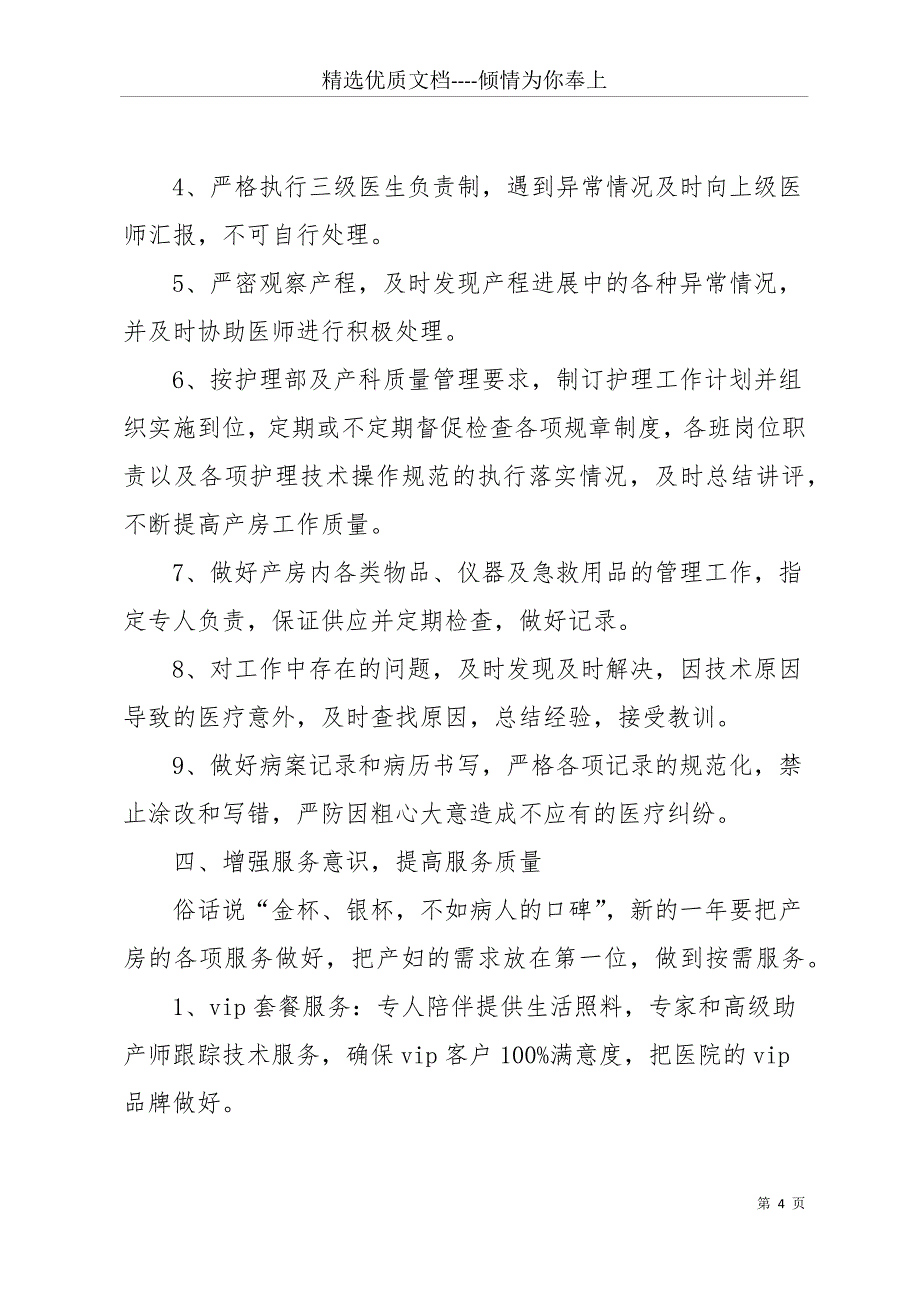 精选优质文档----倾情为你奉上
4、严格执行三级医生负责制，遇到异常情况及时向上级医
师汇报，不可自行处理。
5、严密观察产程，及时发现产程进展中的各种异常情况，
并及时协助医师进行积极处理。
6、按护理部及产科质量管理要求，制订护理工作计划并组
织实施到位，定期或不定期督促检查各项规章制度，各班岗位职
责以及各项护理技术操作规范的执行落实情况，及时总结讲评，
不断提高产房工作质量。
7、做好产房内各类物品、仪器及急救用品的管理工作，指
定专人负责，保证供应并定期检查，做好记录。
8、对工作中存在的问题，及时发现及时解决，因技术原因
导致的医疗意外，及时查找原因，总结经验，接受教训。
9、做好病案记录和病历书写，严格各项记录的规范化，禁
止涂改和写错，严防因粗心大意造成不应有的医疗纠纷。
四、增强服务意识，提高服务质量
俗话说“金杯、银杯，不如病人的口碑”，新的一年要把产
房的各项服务做好，把产妇的需求放在第一位，做到按需服务。
1、vip 套餐服务：专人陪伴提供生活照料，专家和高级助
产师跟踪技术服务，确保 vip 客户 100%满意度，把医院的 vip
品牌做好。
第 4 页